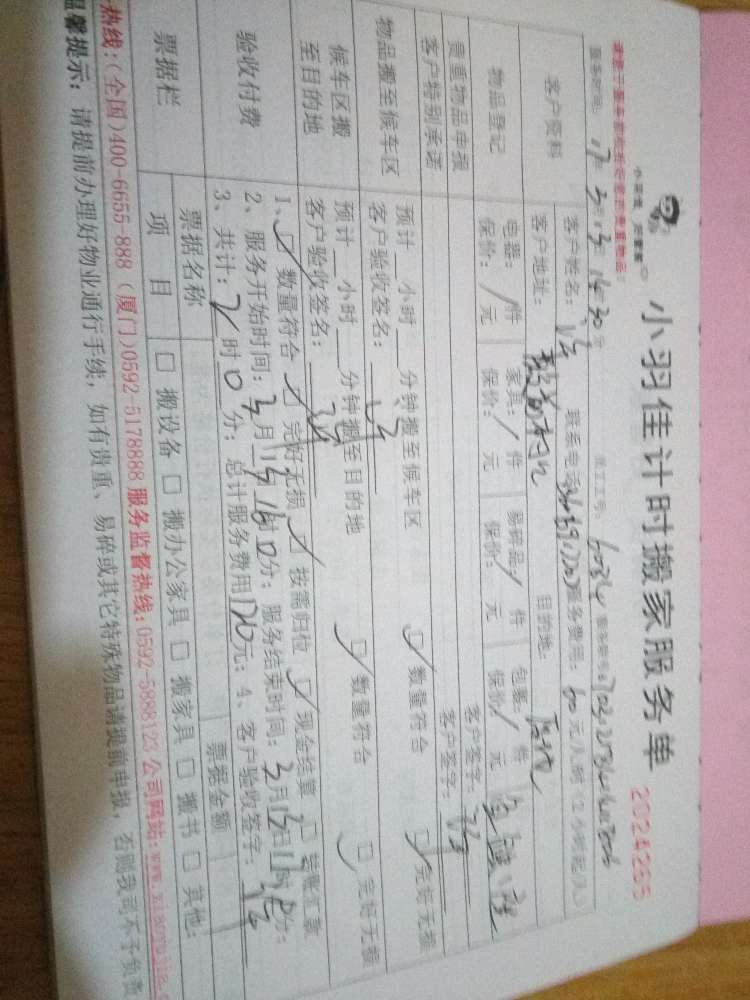 小羽佳计时搬家服务单
2024265
小羽佳，大管家
请勿于服务前收拾您的贵重物品！
服务时间：17 3 13 14 30分 员工工号： 服务单号：
客户资料
客户姓名： 联系电话 服务费用：60元/人时（2小时起/人）
客户地址： 目的地：
物品登记
电器：/件 家具：/件 易碎品/件 包裹：/件
保价：/元 保价：/元 保价：元 保价/元
贵重物品申报 客户签字：
客户特别承诺 客户签字：
物品搬至候车区
预计__小时__分钟搬至候车区 □数量符合 □完好无损
客户验收签名：
候车区搬至目的地
预计__小时__分钟搬至目的地 □数量符合 □完好无损
客户验收签名：
验收付费
1、□数量符合 □完好无损 □按需归位 □现金结算 □转账汇款
2、服务开始时间：3月13日 分；服务结束时间：3月13日 分；
3、共计：2时0分；总计服务费用120元；4、客户验收签字：
票据栏
票据名称 票据金额
项目 □搬设备 □搬办公家具 □搬家具 □搬书 □其他：
热线：(全国)400-6655-888（厦门)0592-5178888 服务监督热线：0592-5888123 公司网站：www.xiaoyujia.
温馨提示：请提前办理好物业通行手续，如有贵重、易碎或其它特殊物品请提前申报，否则我司不予负责